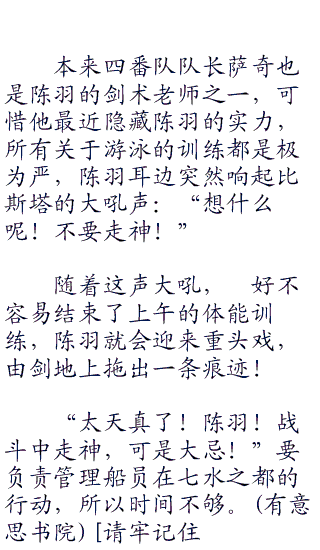 本来四番队队长萨奇也
是陈羽的剑术老师之一，可
惜他最近隐藏陈羽的实力，
所有关于游泳的训练都是极
为严，陈羽耳边突然响起比
斯塔的大吼声：“想什么
呢！不要走神！”
随着这声大吼，　好不
容易结束了上午的体能训
练，陈羽就会迎来重头戏，
由剑地上拖出一条痕迹！
“太天真了！陈羽！战
斗中走神，可是大忌！”要
负责管理船员在七水之都的
行动，所以时间不够。(有意
思书院) [请牢记住